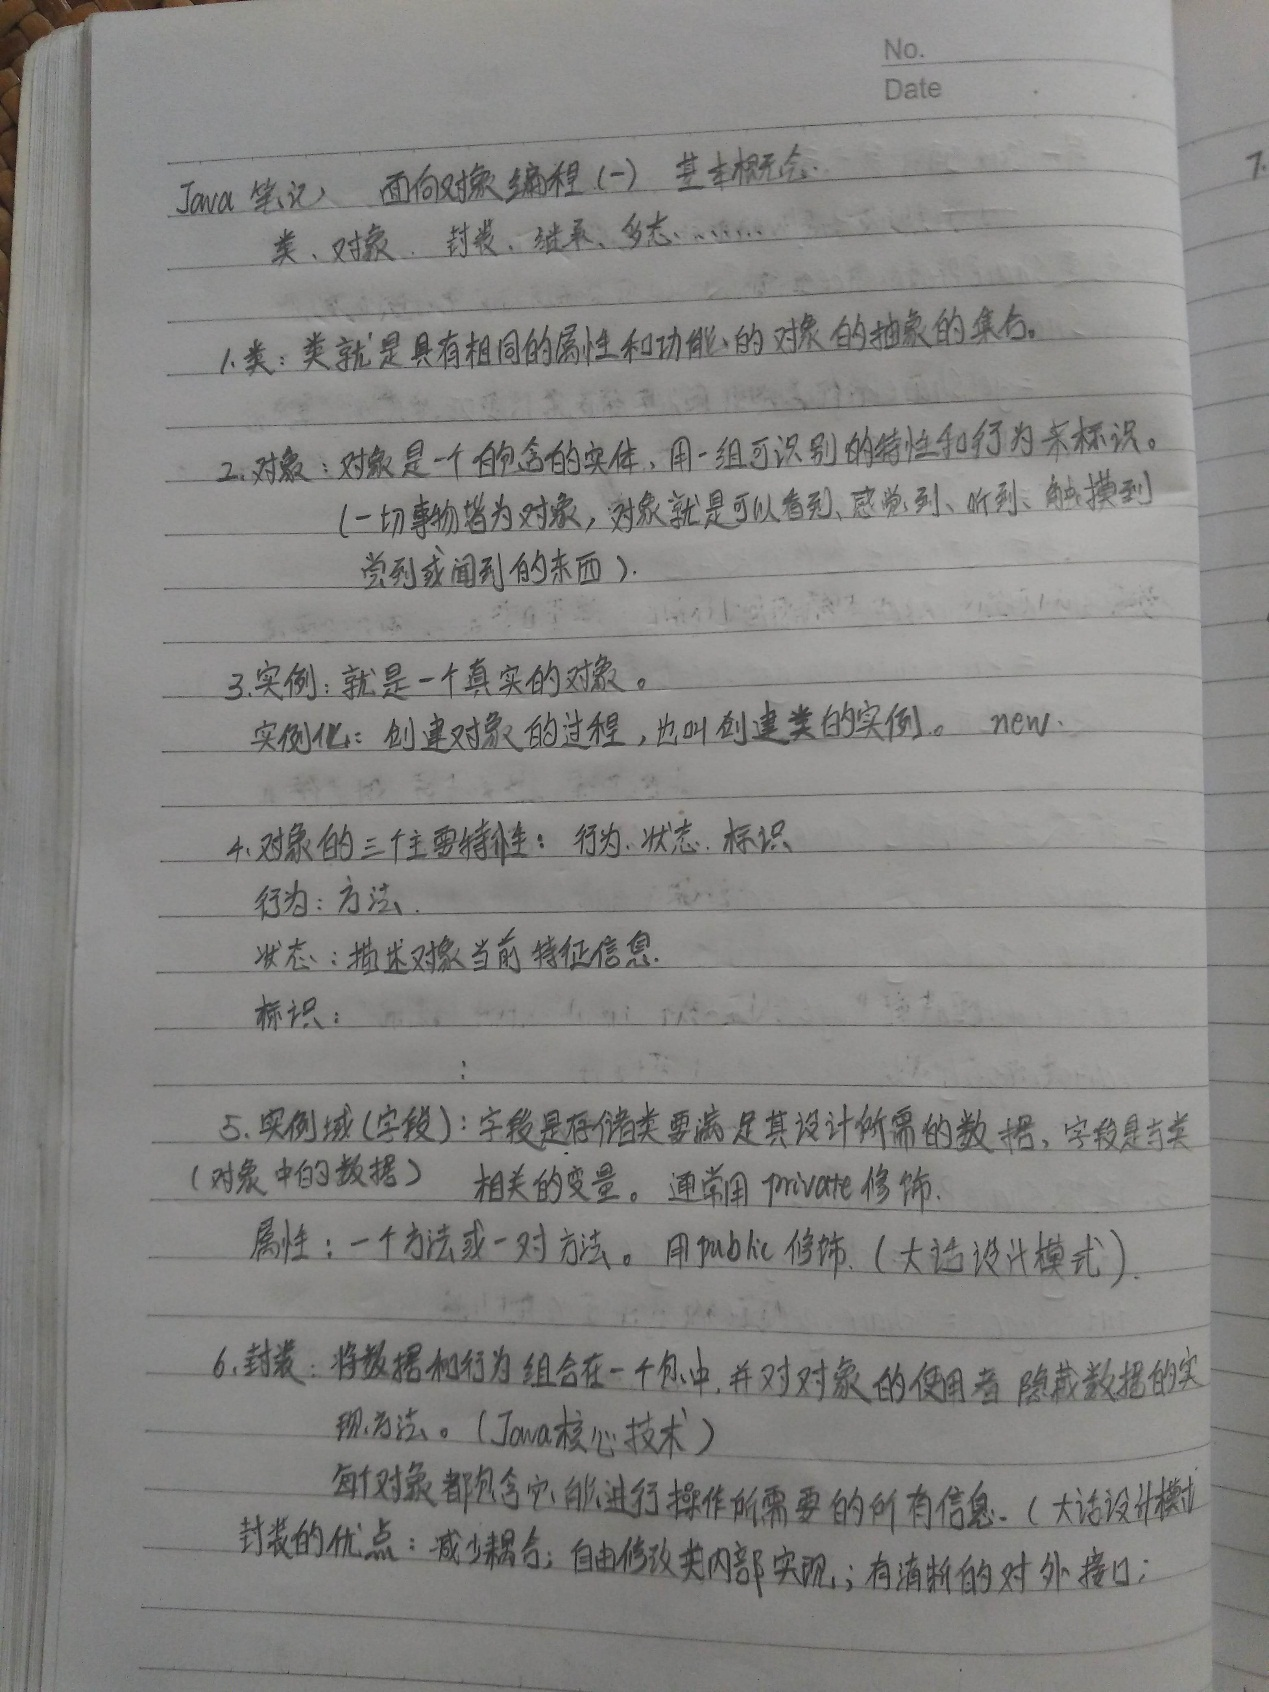 No.
Date
Java 笔记 面向对象编程(一) 基本概念.
类、对象、封装、继承、多态、......
1.类：类就是具有相同的属性和功能的对象的抽象的集合。
2.对象：对象是一个自包含的实体、用一组可识别的特性和行为来标识。
(一切事物皆为对象，对象就是可以看到、感觉到、听到、触摸到
尝到或闻到的东西).
3.实例：就是一个真实的对象。
实例化：创建对象的过程，也叫创建类的实例。 new.
4.对象的三个主要特性：行为、状态、标识
行为：方法.
状态：描述对象当前特征信息.
标识：
:
5.实例域(字段)：字段是存储类要满足其设计所需的数据、字段是与类
(对象中的数据) 相关的变量。通常用private修饰.
属性：一个方法或一对方法。用public修饰.(大话设计模式).
6.封装：将数据和行为组合在一个包中，并对对象的使用者隐藏数据的实
现方法。(Java核心技术)
每个对象都包含它能进行操作所需要的所有信息.(大话设计模式
封装的优点：减少耦合；自由修改类内部实现；有清晰的对外接口；
7.